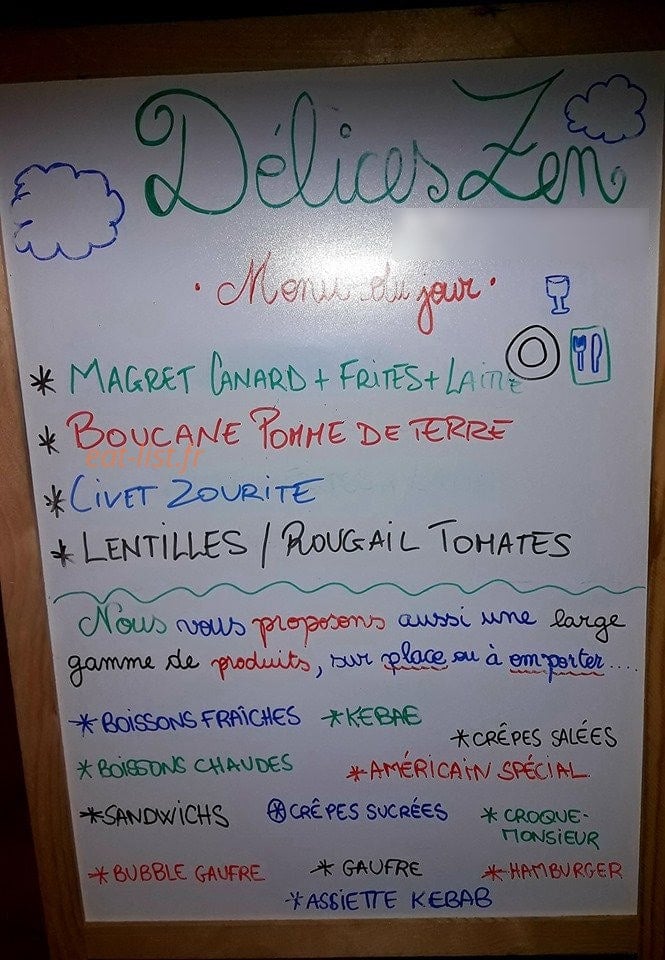 Délices Zen
• Menu du jour •
* MAGRET CANARD + FRITES + LAITUE
* BOUCANE POMME DE TERRE
eat-list.fr
* CIVET ZOURITE
* LENTILLES / ROUGAIL TOMATES
Nous vous proposons aussi une large
gamme de produits, sur place ou à emporter....
* BOISSONS FRAÎCHES * KEBAB
* CRÊPES SALÉES
* BOISSONS CHAUDES * AMÉRICAIN SPÉCIAL
* SANDWICHS * CRÊPES SUCRÉES * CROQUE-
MONSIEUR
* BUBBLE GAUFRE * GAUFRE * HAMBURGER
* ASSIETTE KEBAB